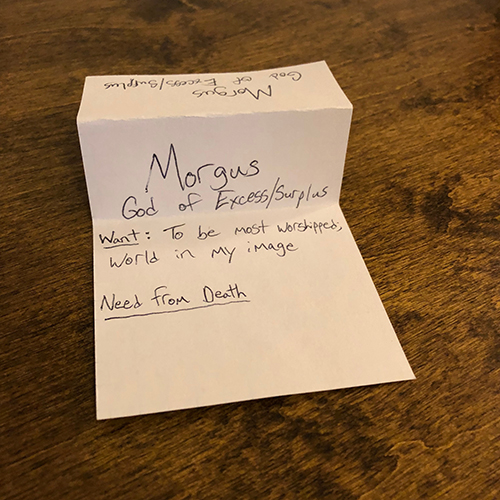 Morgus
God of Excess/Surplus
Morgus
God of Excess/Surplus
Want: To be most worshipped;
World in my image
Need from Death